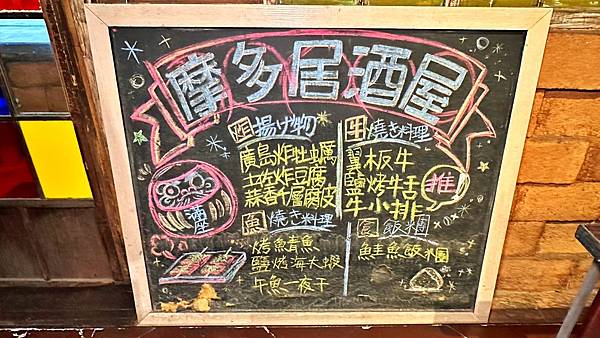 摩多居酒屋
炸揚げ物
廣島炸牡蠣
土佐炸豆腐
蒜香千層腐皮
牛焼き料理
翼板牛
鹽烤牛舌
牛小排
推
酒座
魚焼き料理
烤鯖魚
鹽烤海大蝦
午魚一夜干
飯糰
鮭魚飯糰